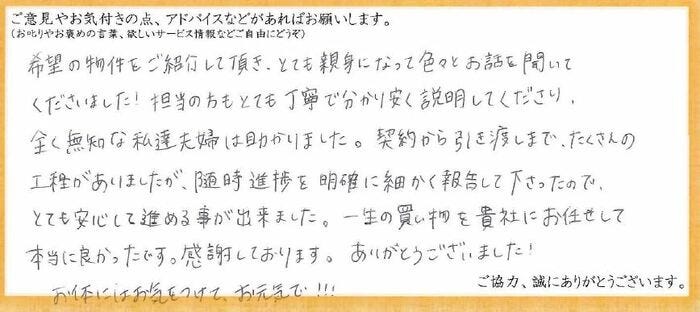 ご意見やお気付きの点、アドバイスなどがあればお願いします。
(お叱りやお褒めの言葉、欲しいサービス情報などご自由にどうぞ)
希望の物件をご紹介して頂き、とても親身になって色々とお話を聞いて
くださいました！担当の方もとても丁寧で分かり安く説明してくださり、
全く無知な私達夫婦は助かりました。契約から引き渡しまで、たくさんの
工程がありましたが、随時進捗を明確に細かく報告して下さったので、
とても安心して進める事が出来ました。一生の買い物を貴社にお任せして
本当に良かったです。感謝しております。ありがとうございました！
お体にはお気をつけて、お元気で!!!
ご協力、誠にありがとうございます。